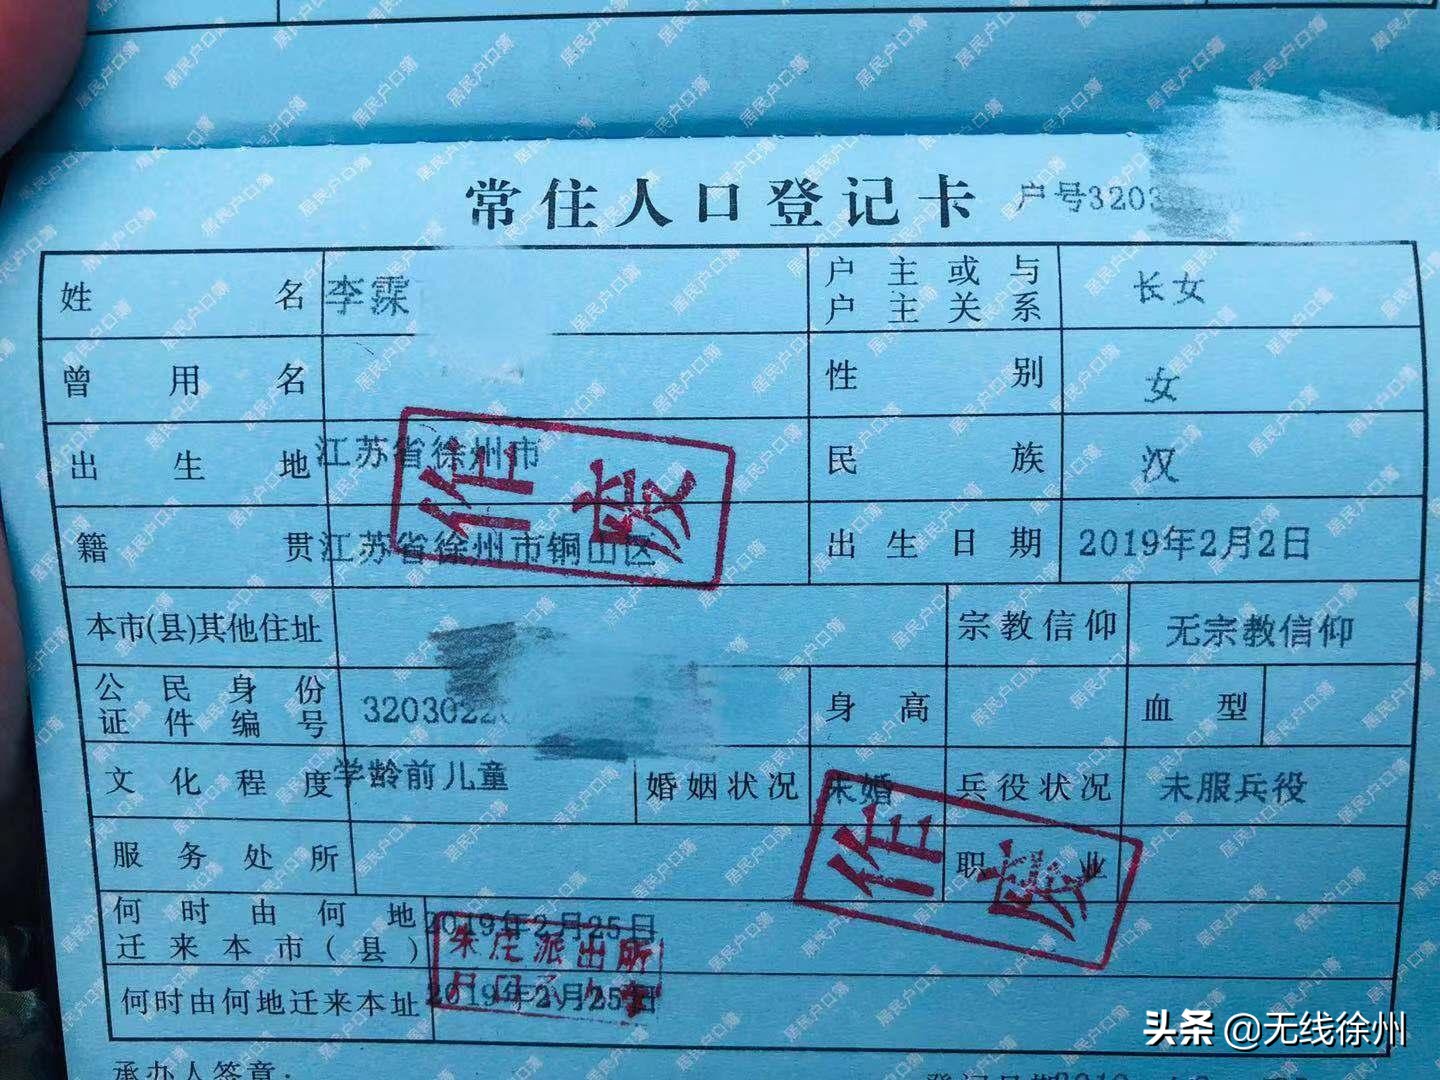 常住人口登记卡 户号3203
姓名 李霂 户主或与户主关系 长女
曾用名 性别 女
出生地 江苏省徐州市 民族 汉
籍贯 江苏省徐州市铜山区 出生日期 2019年2月2日
作废
本市(县)其他住址 宗教信仰 无宗教信仰
公民身份证件编号 3203022 身高 血型
文化程度 学龄前儿童 婚姻状况 未婚 兵役状况 未服兵役
服务处所 职业
作废
何时由何地迁来本市(县) 2019年2月25日
朱庄派出所
何时由何地迁来本址 2019年2月25日
承办人签章:
头条 @无线徐州